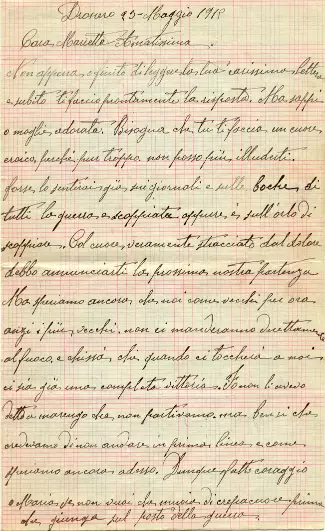 23-Maggio 191
Cara Marietta Amatissima
Non appena finito di leggere la tua carissima lettera
e subito ti faccio prontamente la risposta. Ma sappi
o moglie adorata. Bisogna che tu ti faccia un cuore
eroico, perchè pur troppo non posso più illuderti.
forse lo sentirai già sui giornali e sulle boche di
tutti la guerra e scoppiata oppure è sull'orlo di
scoppiare. Col cuore veramente stracciato dal dolore
debbo annunciarti la prossima nostra partenza
Ma speriamo ancora che noi come vecchi per ora
anzi i più vecchi non ci manderanno direttamente
al fuoco, e chissa che quando ci toccherà a noi
ci sia già una completa vittoria. Io non ti avevo
detto a marengo che non partivamo, ma bensi che
credevamo di non andare in prima linea e come
speriamo ancora adesso. Dunque fatti coraggio
o Maria se non vuoi che muoia di crepacuore prima
che giunga sul posto della guerra